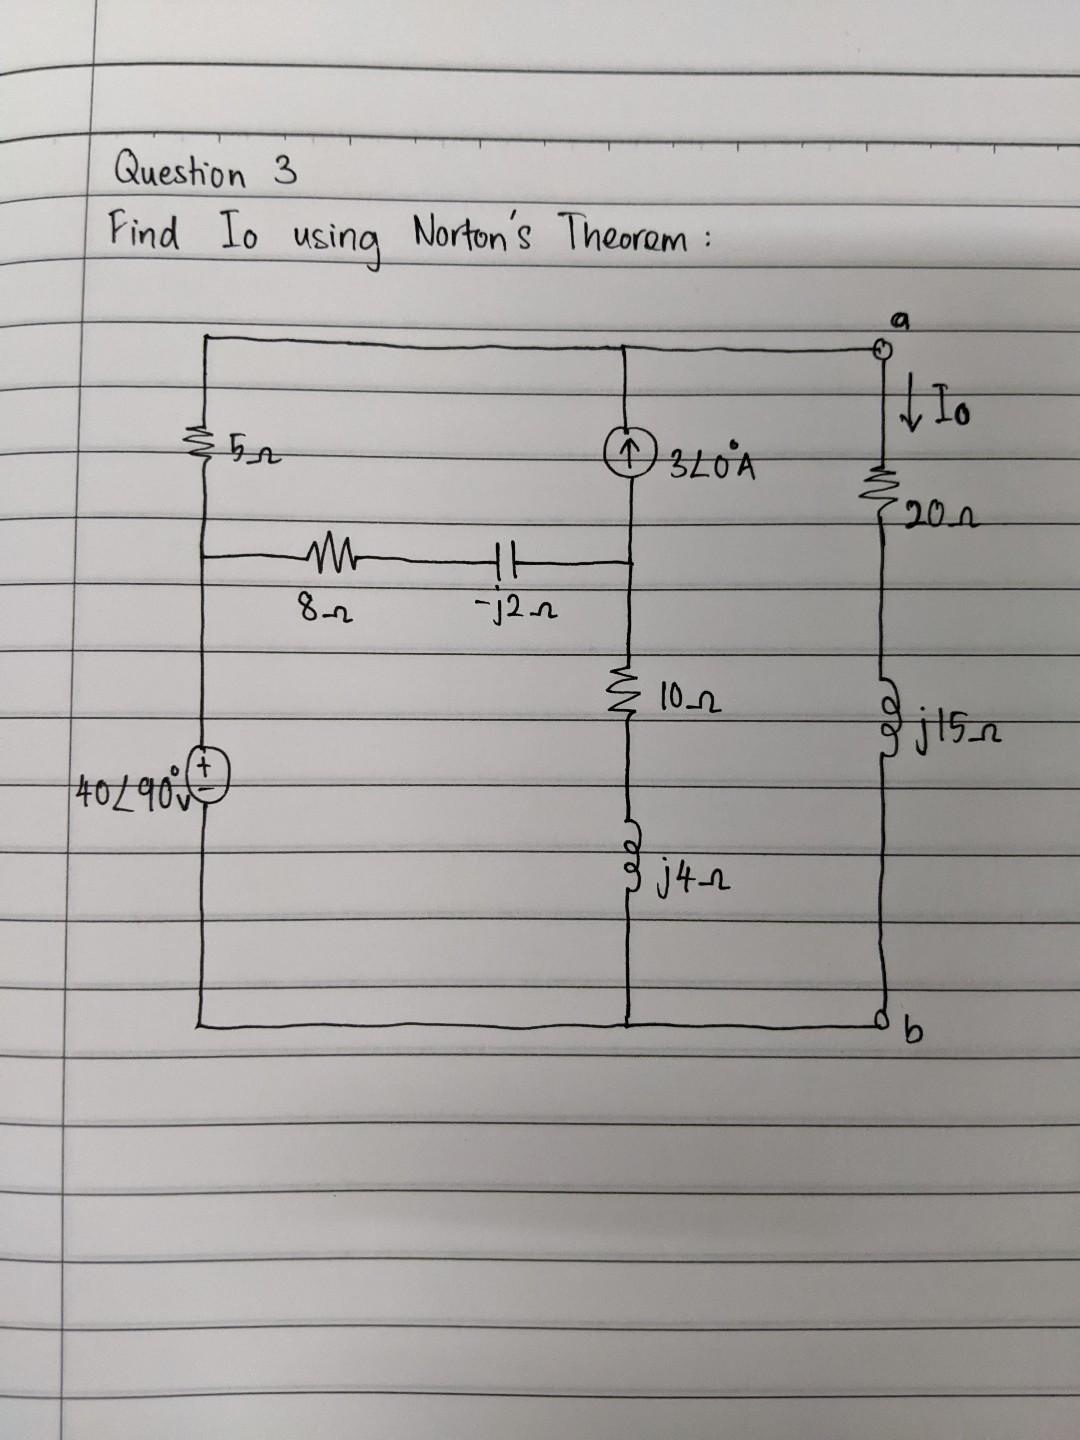 Question 3
Find Io using Norton's Theorem :
a
Io
5Ω
3∠0°A
20Ω
8Ω
-j2Ω
10Ω
j15Ω
+
-
40∠90°v
j4Ω
b